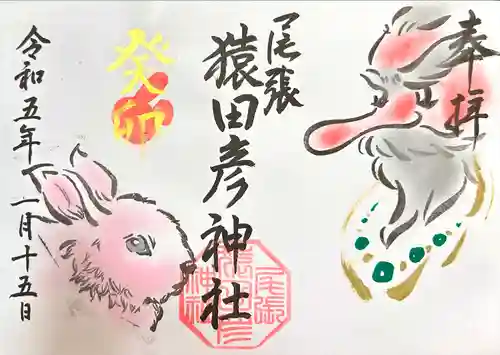 奉拝
尾張
猿田彦神社
癸卯
令和五年一月十五日
尾張
猿田彦
神社